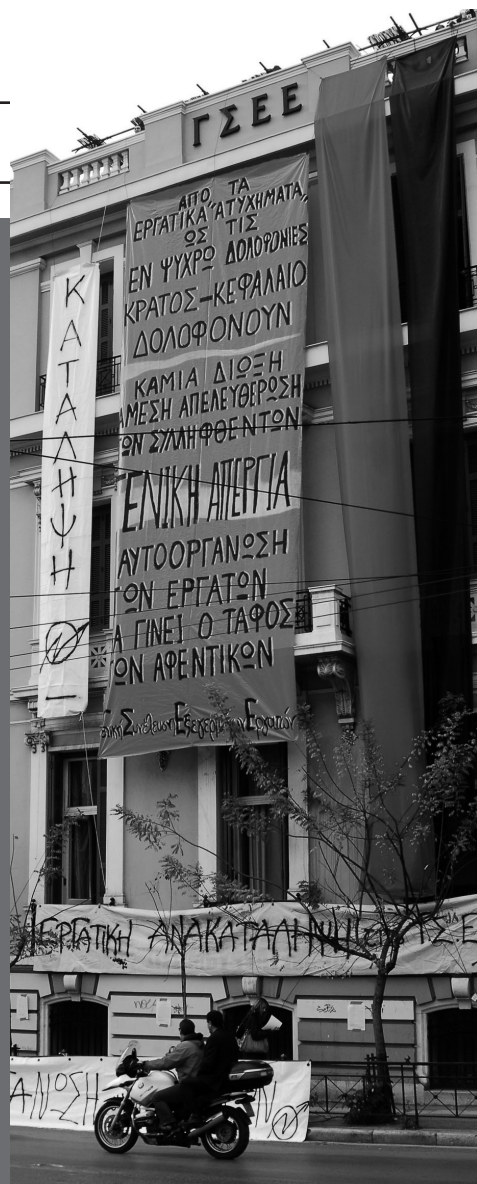 ΓΣΕΕ
ΚΑΤΑΛΗΨΗ
ΑΠΟ ΤΑ
ΕΡΓΑΤΙΚΑ "ΑΤΥΧΗΜΑΤΑ"
ΩΣ ΤΙΣ
ΕΝ ΨΥΧΡΩ ΔΟΛΟΦΟΝΙΕΣ
ΚΡΑΤΟΣ-ΚΕΦΑΛΑΙΟ
ΔΟΛΟΦΟΝΟΥΝ
ΚΑΜΙΑ ΔΙΩΞΗ
ΑΜΕΣΗ ΑΠΕΛΕΥΘΕΡΩΣΗ
ΩΝ ΣΥΛΛΗΦΘΕΝΤΩΝ
ΓΕΝΙΚΗ ΑΠΕΡΓΙΑ
ΑΥΤΟΟΡΓΑΝΩΣΗ
ΩΝ ΕΡΓΑΤΩΝ
Α ΓΙΝΕΙ Ο ΤΑΦΟΣ
ΩΝ ΑΦΕΝΤΙΚΩΝ
Συνέλευση Εξεγερμένων Εργατών
ΕΡΓΑΤΙΚΗ ΑΝΑΚΑΤΑΛΗΨΗ
ΑΝΩΣΗ